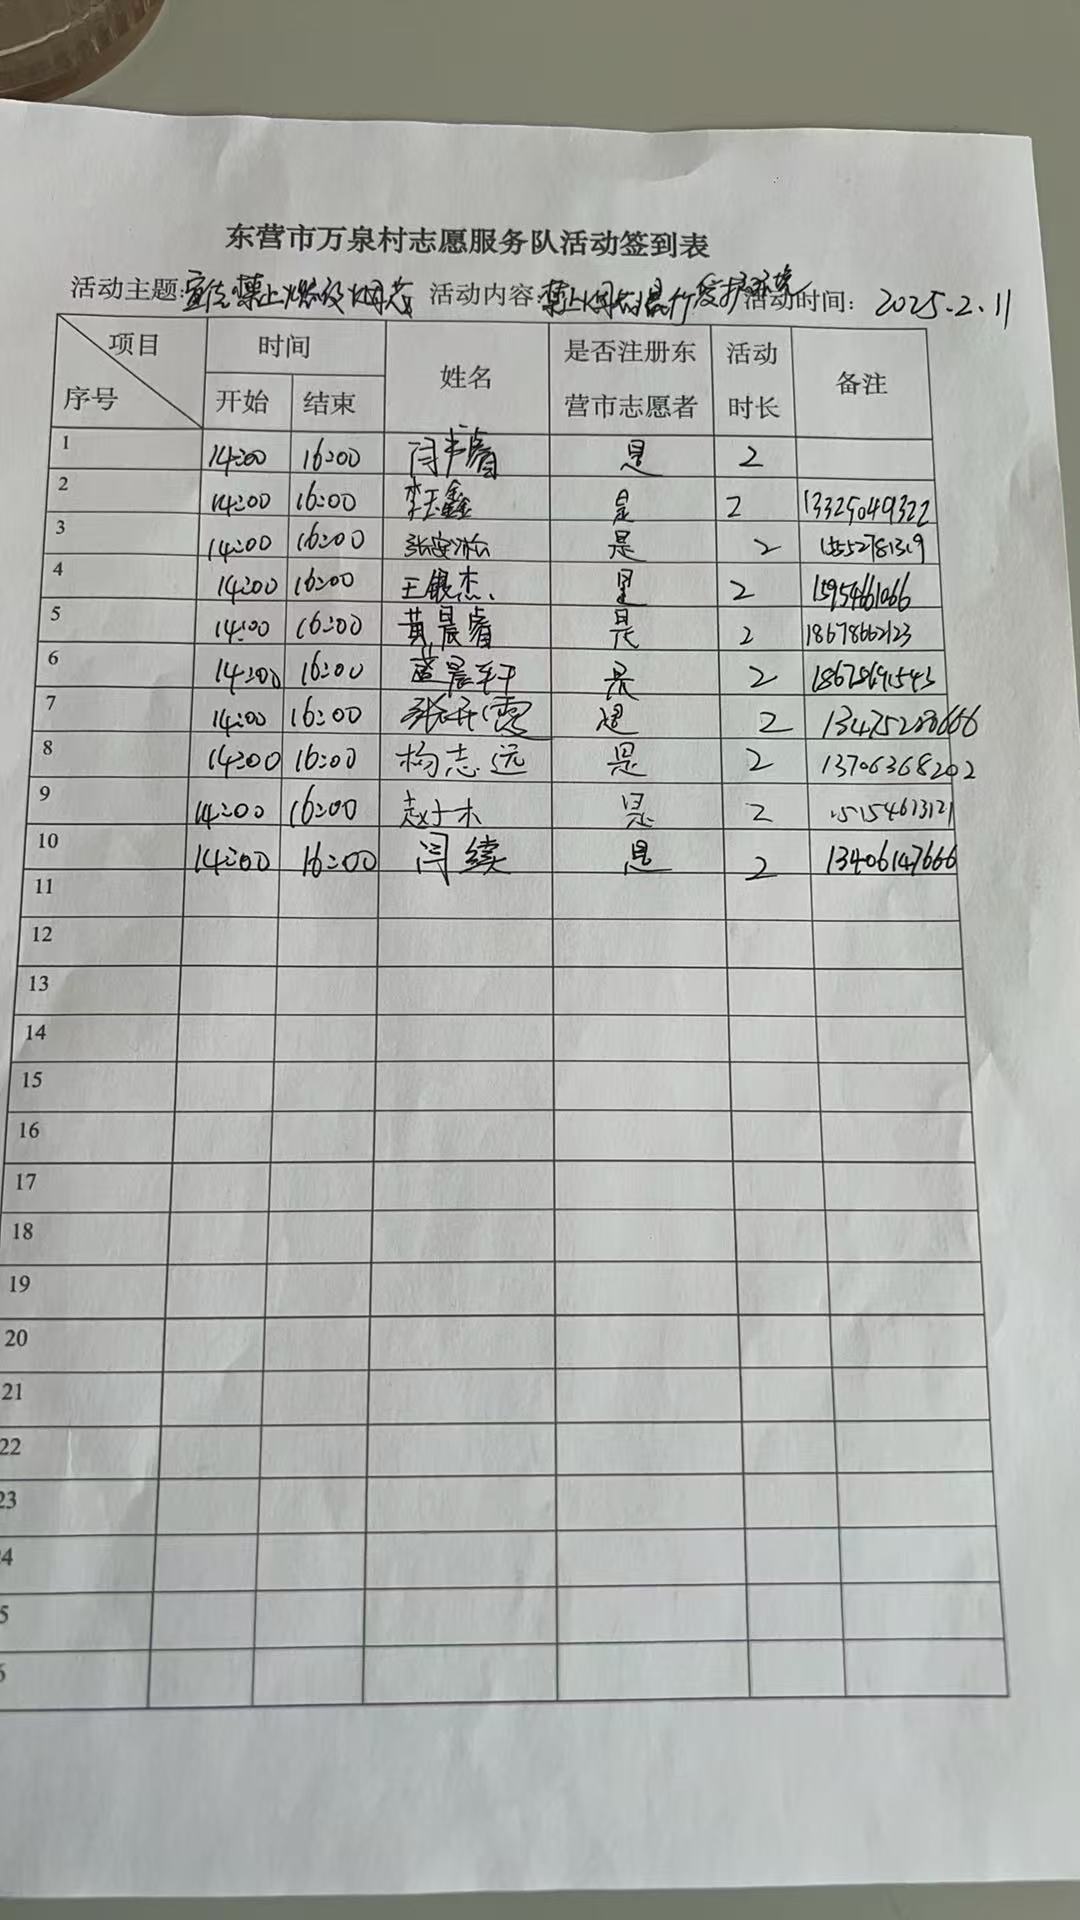 东营市万泉村志愿服务队活动签到表
活动主题:宣传禁止燃放 活动内容:禁止 爱护环境 活动时间: 2025.2.11
项目 时间 姓名 是否注册东营市志愿者 活动时长 备注
序号 开始 结束
1 14:00 16:00 是 2
2 14:00 16:00 李玉鑫 是 2 13325049322
3 14:00 16:00 是 2 15552781319
4 14:00 16:00 王银杰 是 2 15954661066
5 14:00 16:00 黄晨睿 是 2 18678662123
6 14:00 16:00 是 2
7 14:00 16:00 是 2
8 14:00 16:00 杨志远 是 2 13706368202
9 14:00 16:00 是 2
10 14:00 16:00 闫续 是 2 13406147666
11
12
13
14
15
16
17
18
19
20
21
22
23
4
5